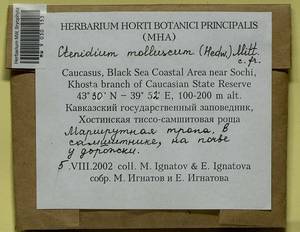 HERBARIUM HORTI BOTANICI PRINCIPALIS
(MHA)
Ctenidium molluscum (Hedw.) Mitt.
c. fr.
Caucasus, Black Sea Coastal Area near Sochi,
Khosta branch of Caucasian State Reserve
43°30' N – 39° 52' E, 100-200 m alt.
Кавказский государственный заповедник,
Хостинская тиссо-самшитовая роща
Маршрутная тропа, в
самшитнике, на почве
у дорожки.
5.VIII.2002 coll. M. Ignatov & E. Ignatova
собр. М. Игнатов и Е. Игнатова